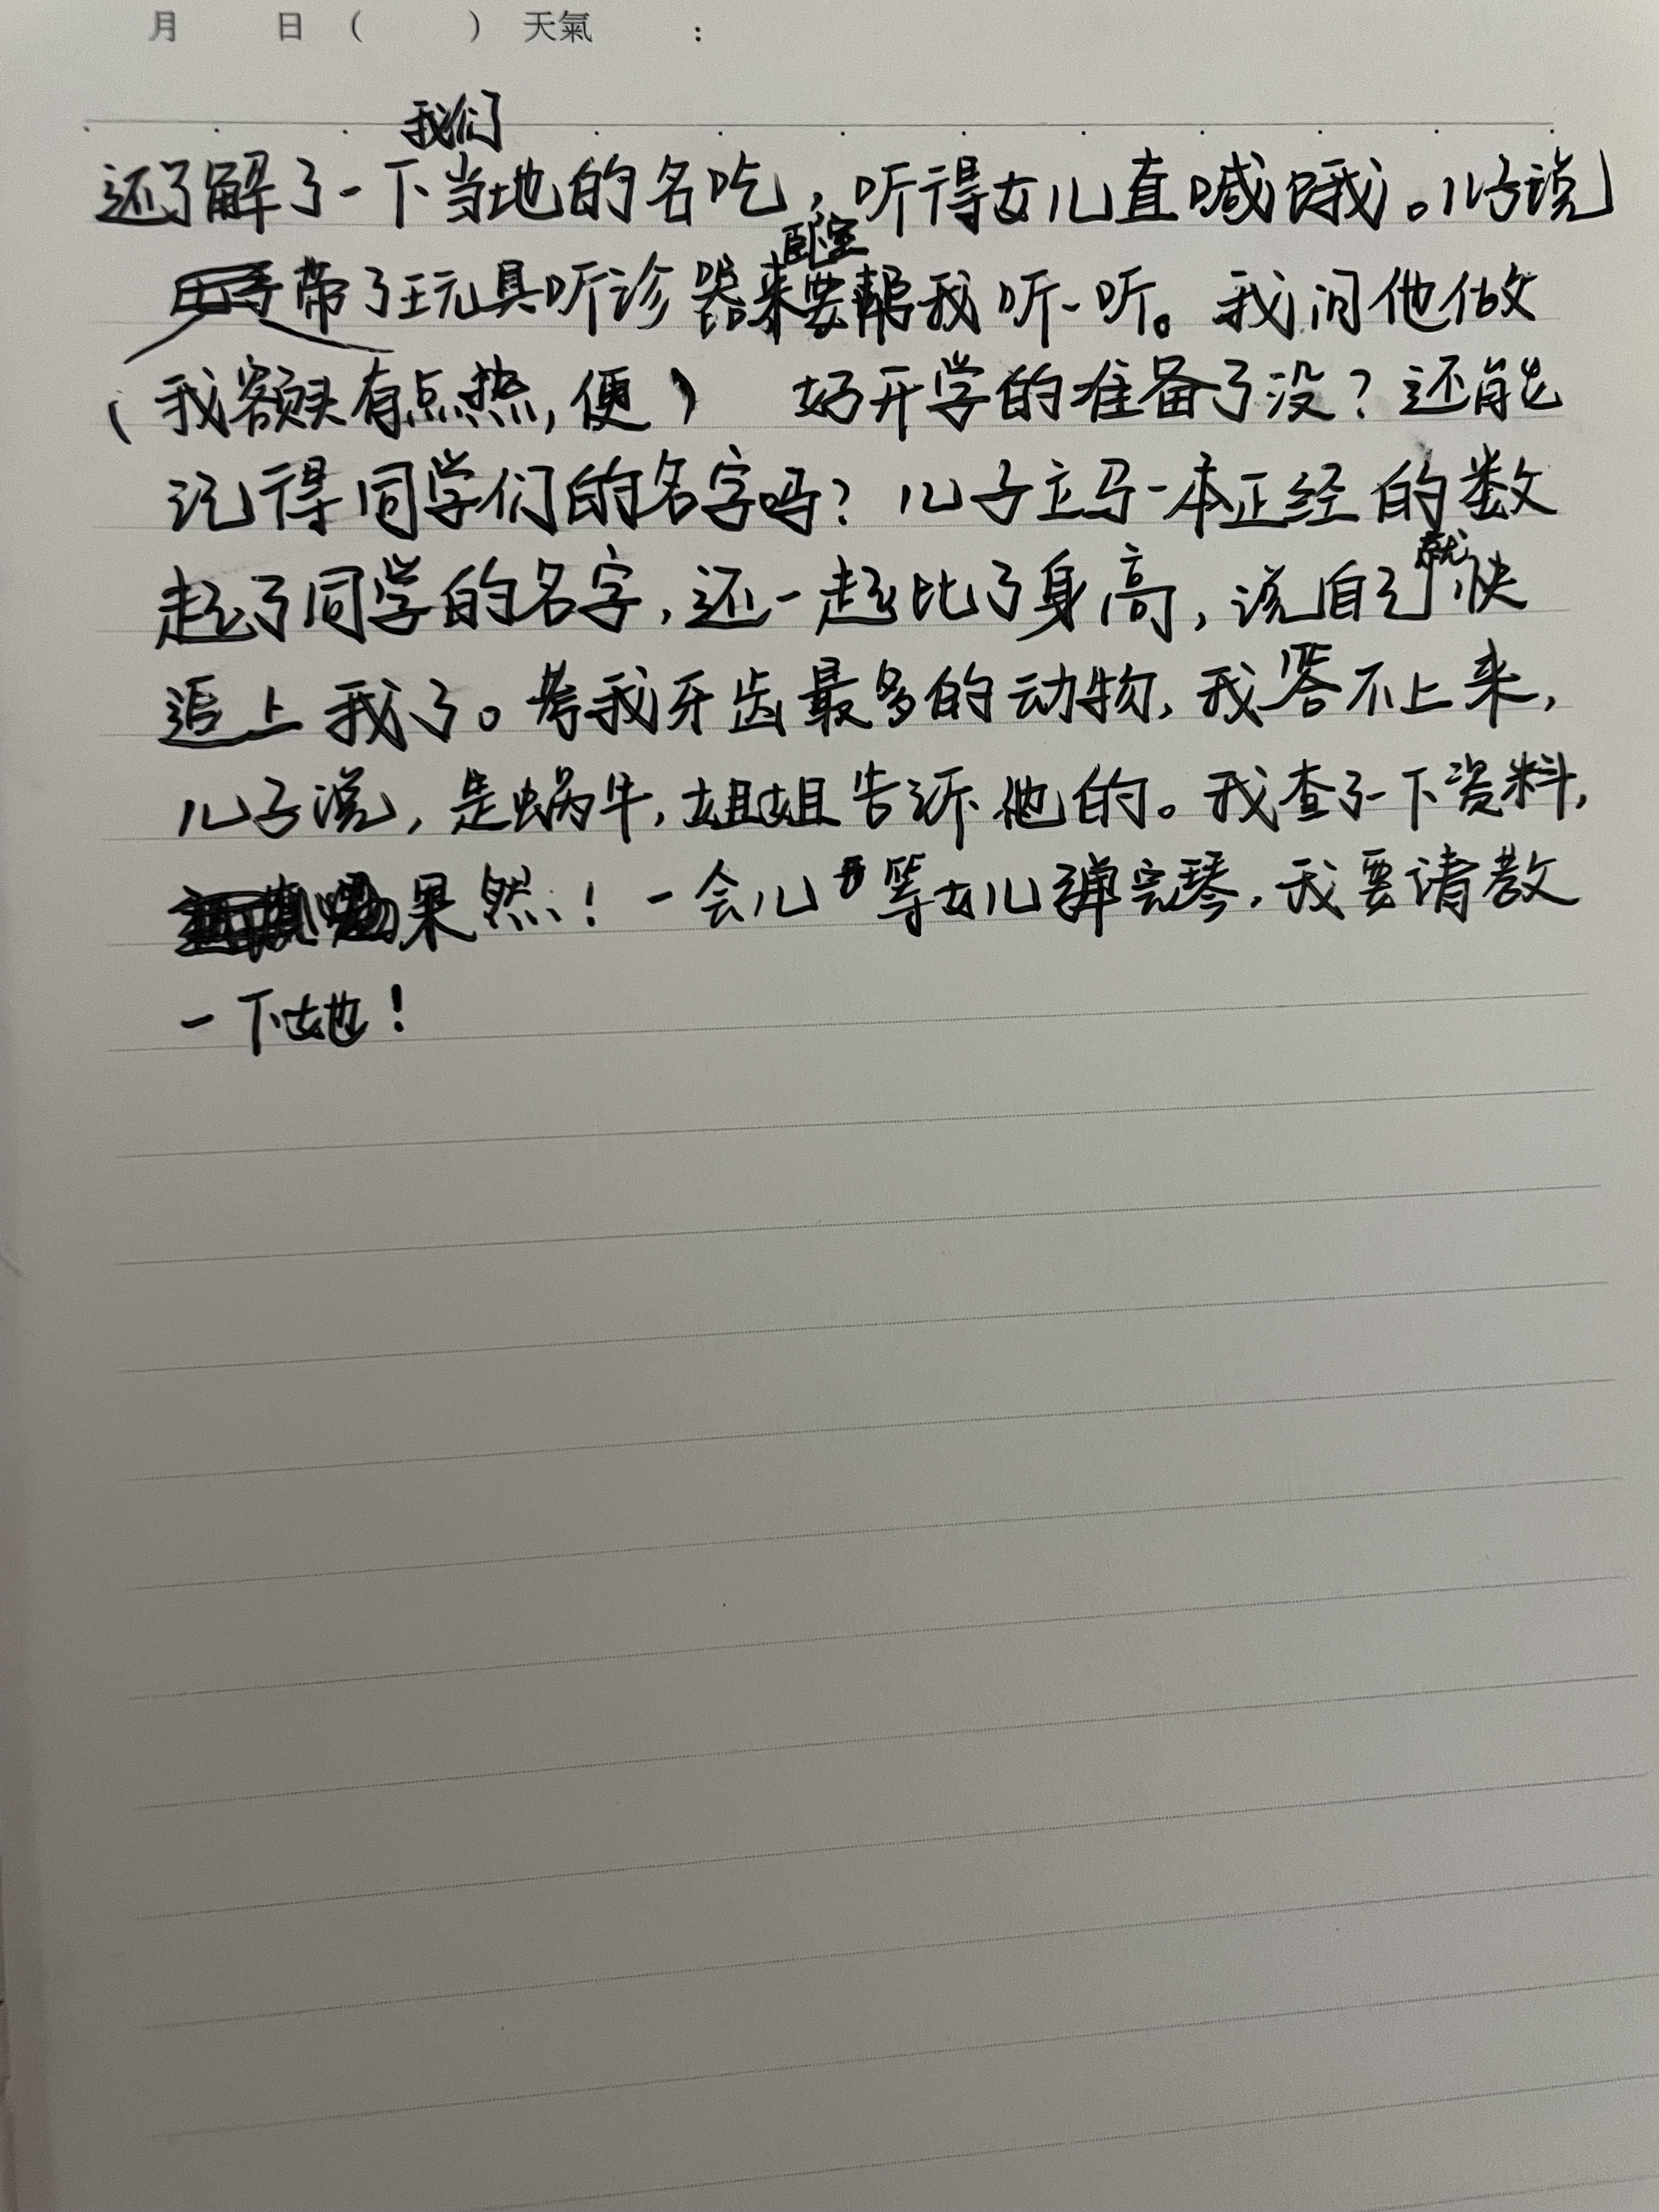 月 日 ( ) 天氣 :
我们
还了解了一下当地的名吃，听得女儿直喊饿。儿子说
卧室
带了玩具听诊器来要帮我听一听。我问他做
（我额头有点热，便） 好开学的准备了没？还能
记得同学们的名字吗？儿子立马一本正经的数
就
起了同学的名字，还一起比了身高，说自己快
追上我了。考我牙齿最多的动物，我答不上来，
儿子说，是蜗牛，姐姐告诉他的。我查了一下资料，
果然！一会儿等女儿弹完琴，我要请教
一下她！